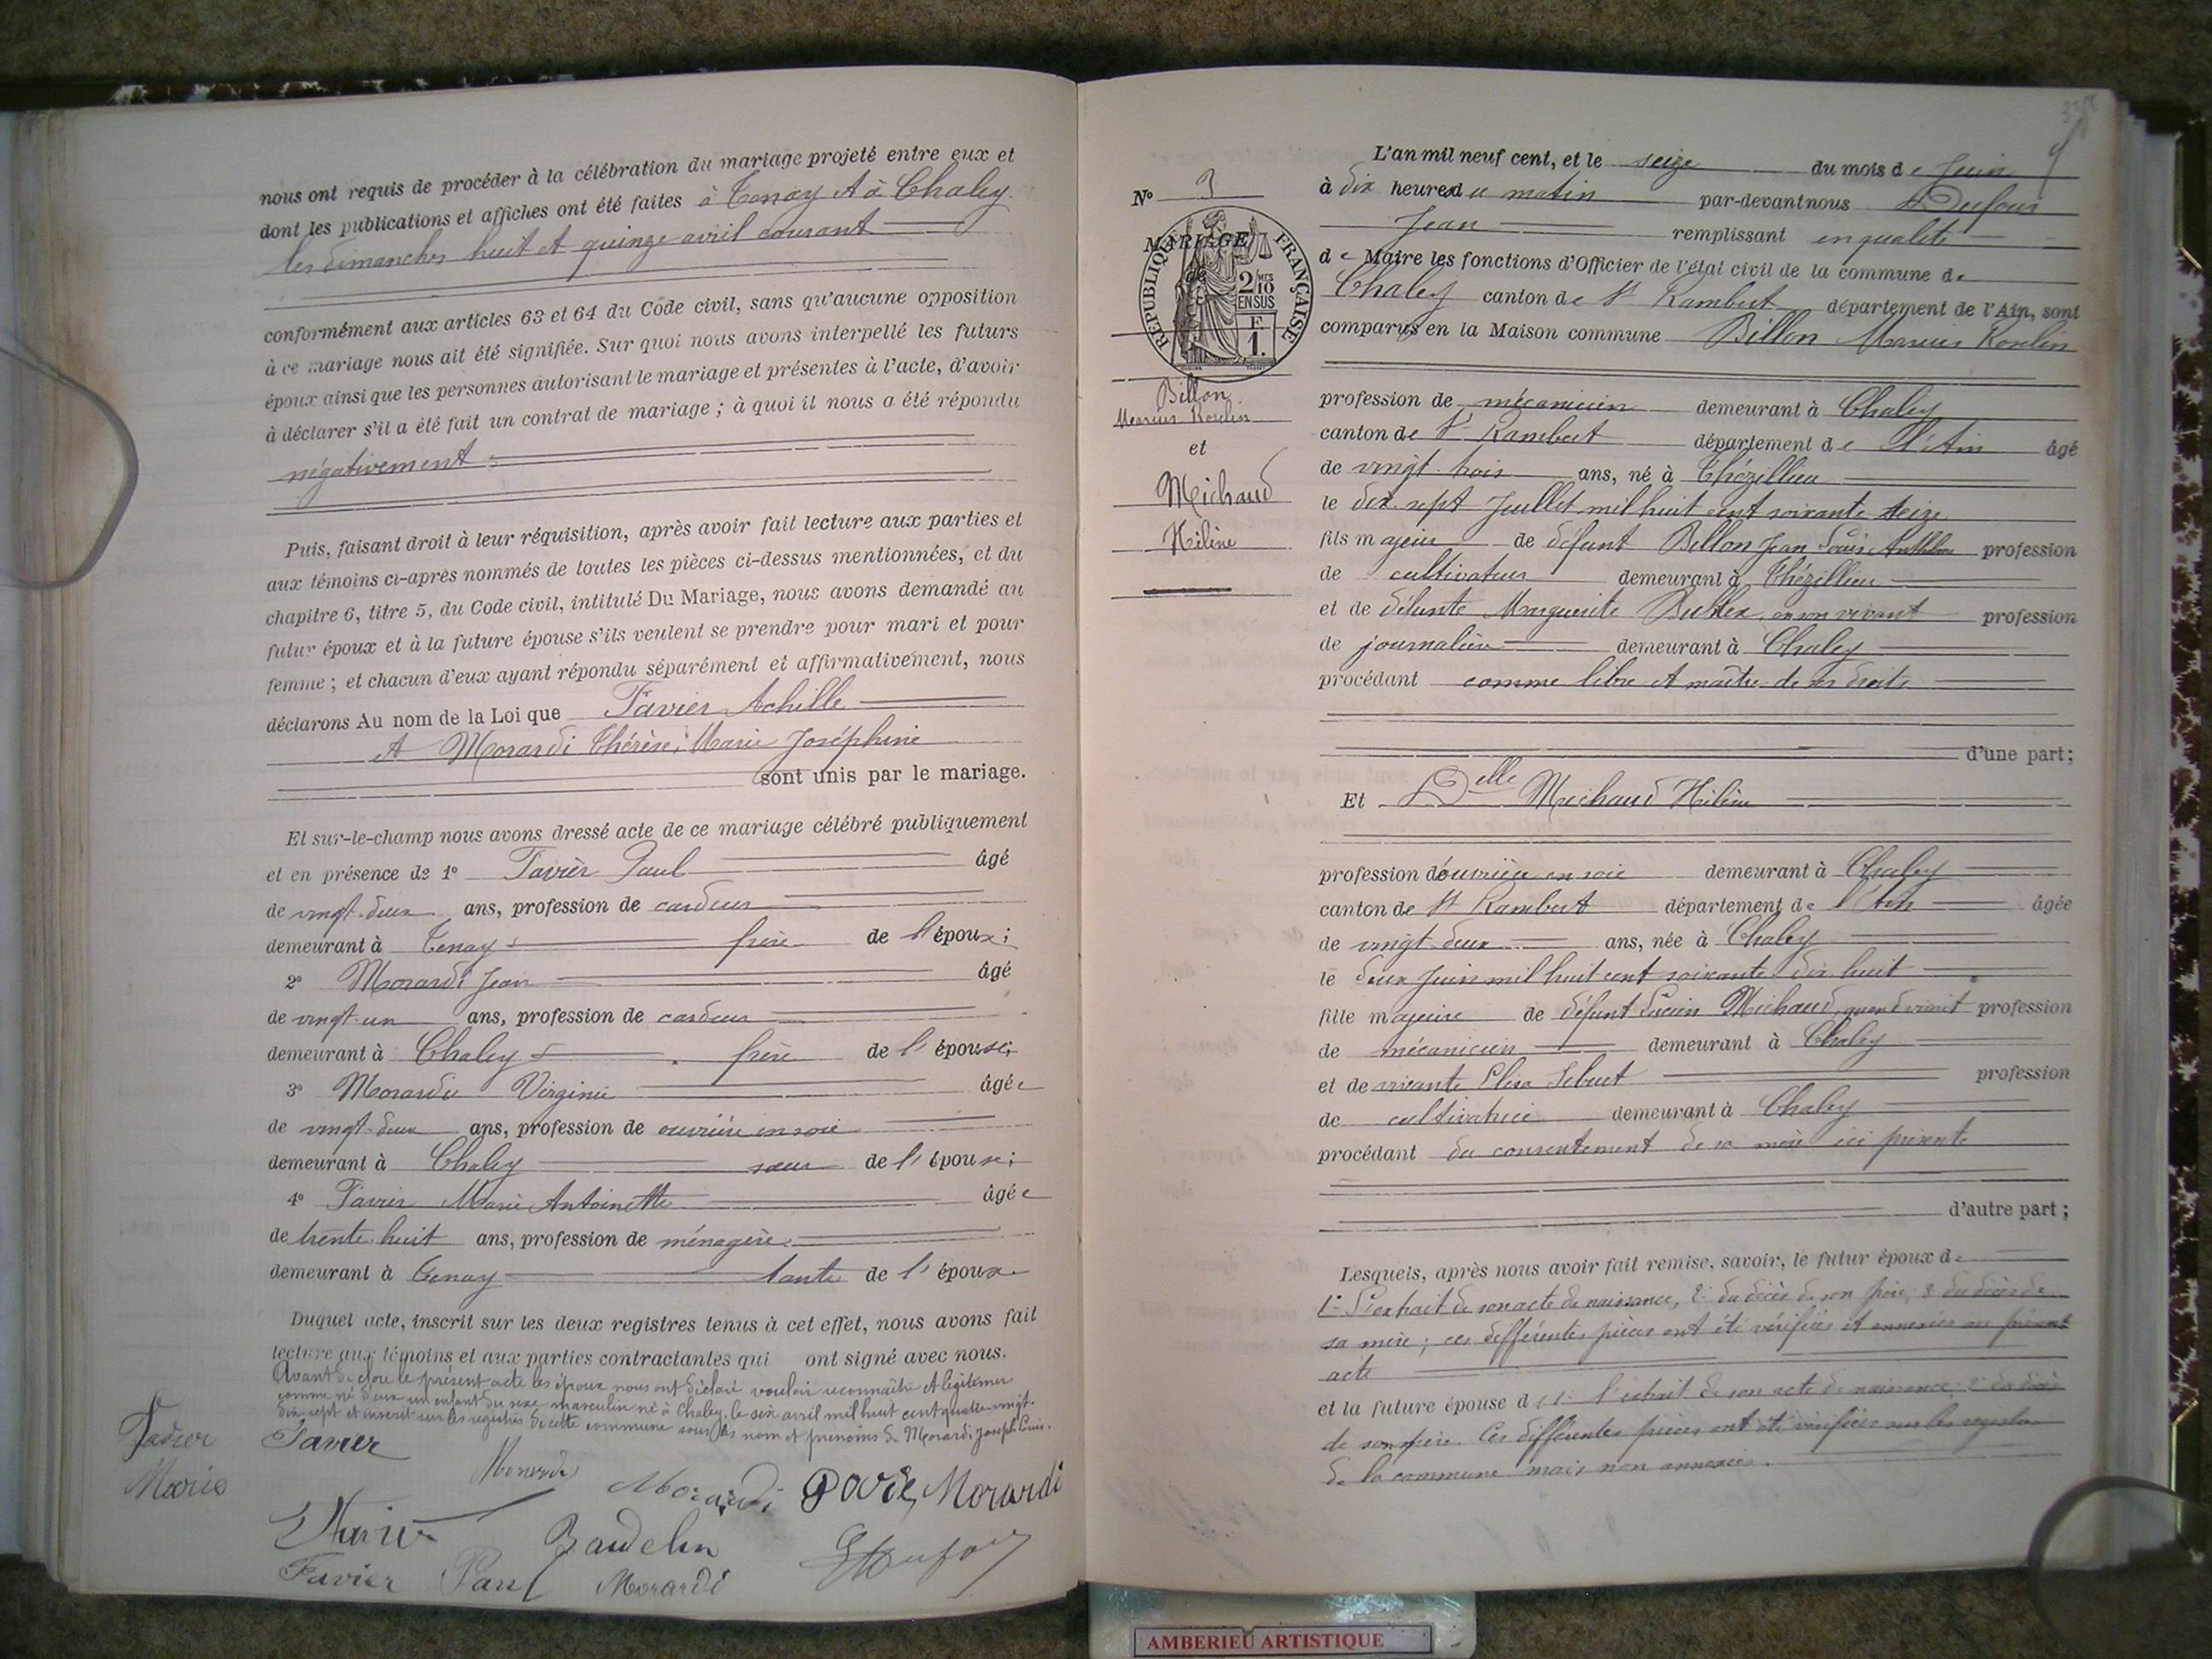 nous ont requis de procéder à la célébration du mariage projeté entre eux et
dont les publications et affiches ont été faites à Tenay et à Chaley
les dimanches huit et quinze avril courant
conformément aux articles 63 et 64 du Code civil, sans qu'aucune opposition
à ce mariage nous ait été signifiée. Sur quoi nous avons interpellé les futurs
époux ainsi que les personnes autorisant le mariage et présentes à l'acte, d'avoir
à déclarer s'il a été fait un contrat de mariage ; à quoi il nous a été répondu
négativement
Puis, faisant droit à leur réquisition, après avoir fait lecture aux parties et
aux témoins ci-après nommés de toutes les pièces ci-dessus mentionnées, et du
chapitre 6, titre 5, du Code civil, intitulé Du Mariage, nous avons demandé au
futur époux et à la future épouse s'ils veulent se prendre pour mari et pour
femme ; et chacun d'eux ayant répondu séparément et affirmativement, nous
déclarons Au nom de la Loi que Favier Achille
et Morardi Thérèse, Marie Joséphine
sont unis par le mariage.
Et sur-le-champ nous avons dressé acte de ce mariage célébré publiquement
et en présence de 1° Favier Paul âgé
de vingt-deux ans, profession de cardeur
demeurant à Tenay frère de l'époux ;
2° Morardi Jean âgé
de vingt-un ans, profession de cardeur
demeurant à Chaley frère de l'épouse ;
3° Morardi Virginie âgée
de vingt-deux ans, profession de ouvrière en soie
demeurant à Chaley sœur de l'épouse ;
4° Favier Marie Antoinette âgée
de trente-huit ans, profession de ménagère
demeurant à Tenay tante de l'époux
Duquel acte, inscrit sur les deux registres tenus à cet effet, nous avons fait
lecture aux témoins et aux parties contractantes qui ont signé avec nous.
Avant de clore le présent acte les époux nous ont déclaré vouloir reconnaître et légitimer
comme né d'eux un enfant du sexe masculin né à Chaley, le six avril mil huit cent quatre-vingt-
dix-sept et inscrit sur les registres de cette commune sous les nom et prénoms de Morardi, Joseph Louis.
Favier
Marie
Favier
Morardi
Morardi
Morardi
Favier
Baudelin
Dufour
Favier Paul
Morardi
N° 3
MARIAGE
de
RÉPUBLIQUE FRANÇAISE
2/10 MES
EN SUS
F
1.
Billon
Marius Roulin
et
Michaud
Hélène
L'an mil neuf cent, et le seize du mois de Juin
à dix heures du matin par-devant nous Dufour
Jean remplissant en qualité
de Maire les fonctions d'Officier de l'état civil de la commune de
Chaley canton de St Rambert département de l'Ain, sont
comparus en la Maison commune Billon Marius Roulin
profession de mécanicien demeurant à Chaley
canton de St Rambert département de l'Ain âgé
de vingt-trois ans, né à Thézillieu
le dix-sept Juillet mil huit cent soixante seize
fils majeur de défunt Billon Jean Louis Anthelme profession
de cultivateur demeurant à Thézillieu
et de défunte Marguerite en son vivant profession
de journalière demeurant à Chaley
procédant comme libre et maître de ses droits
d'une part ;
Et Delle Michaud Hélène
profession d'ouvrière en soie demeurant à Chaley
canton de St Rambert département de l'Ain âgée
de vingt-deux ans, née à Chaley
le deux Juin mil huit cent soixante dix huit
fille majeure de défunt Lucien Michaud, quand vivait profession
de mécanicien demeurant à Chaley
et de vivante profession
de cultivatrice demeurant à Chaley
procédant du consentement de sa mère ici présente
d'autre part ;
Lesquels, après nous avoir fait remise, savoir, le futur époux de
1° L'extrait de son acte de naissance, 2° du décès de son père, 3° du décès de
sa mère ; ces différentes pièces ont été vérifiées et annexées au présent
acte
et la future épouse de 1° l'extrait de son acte de naissance 2° du décès
de son père. Ces différentes pièces ont été vérifiées sur les registres
de la commune mais non annexées.
AMBERIEU ARTISTIQUE